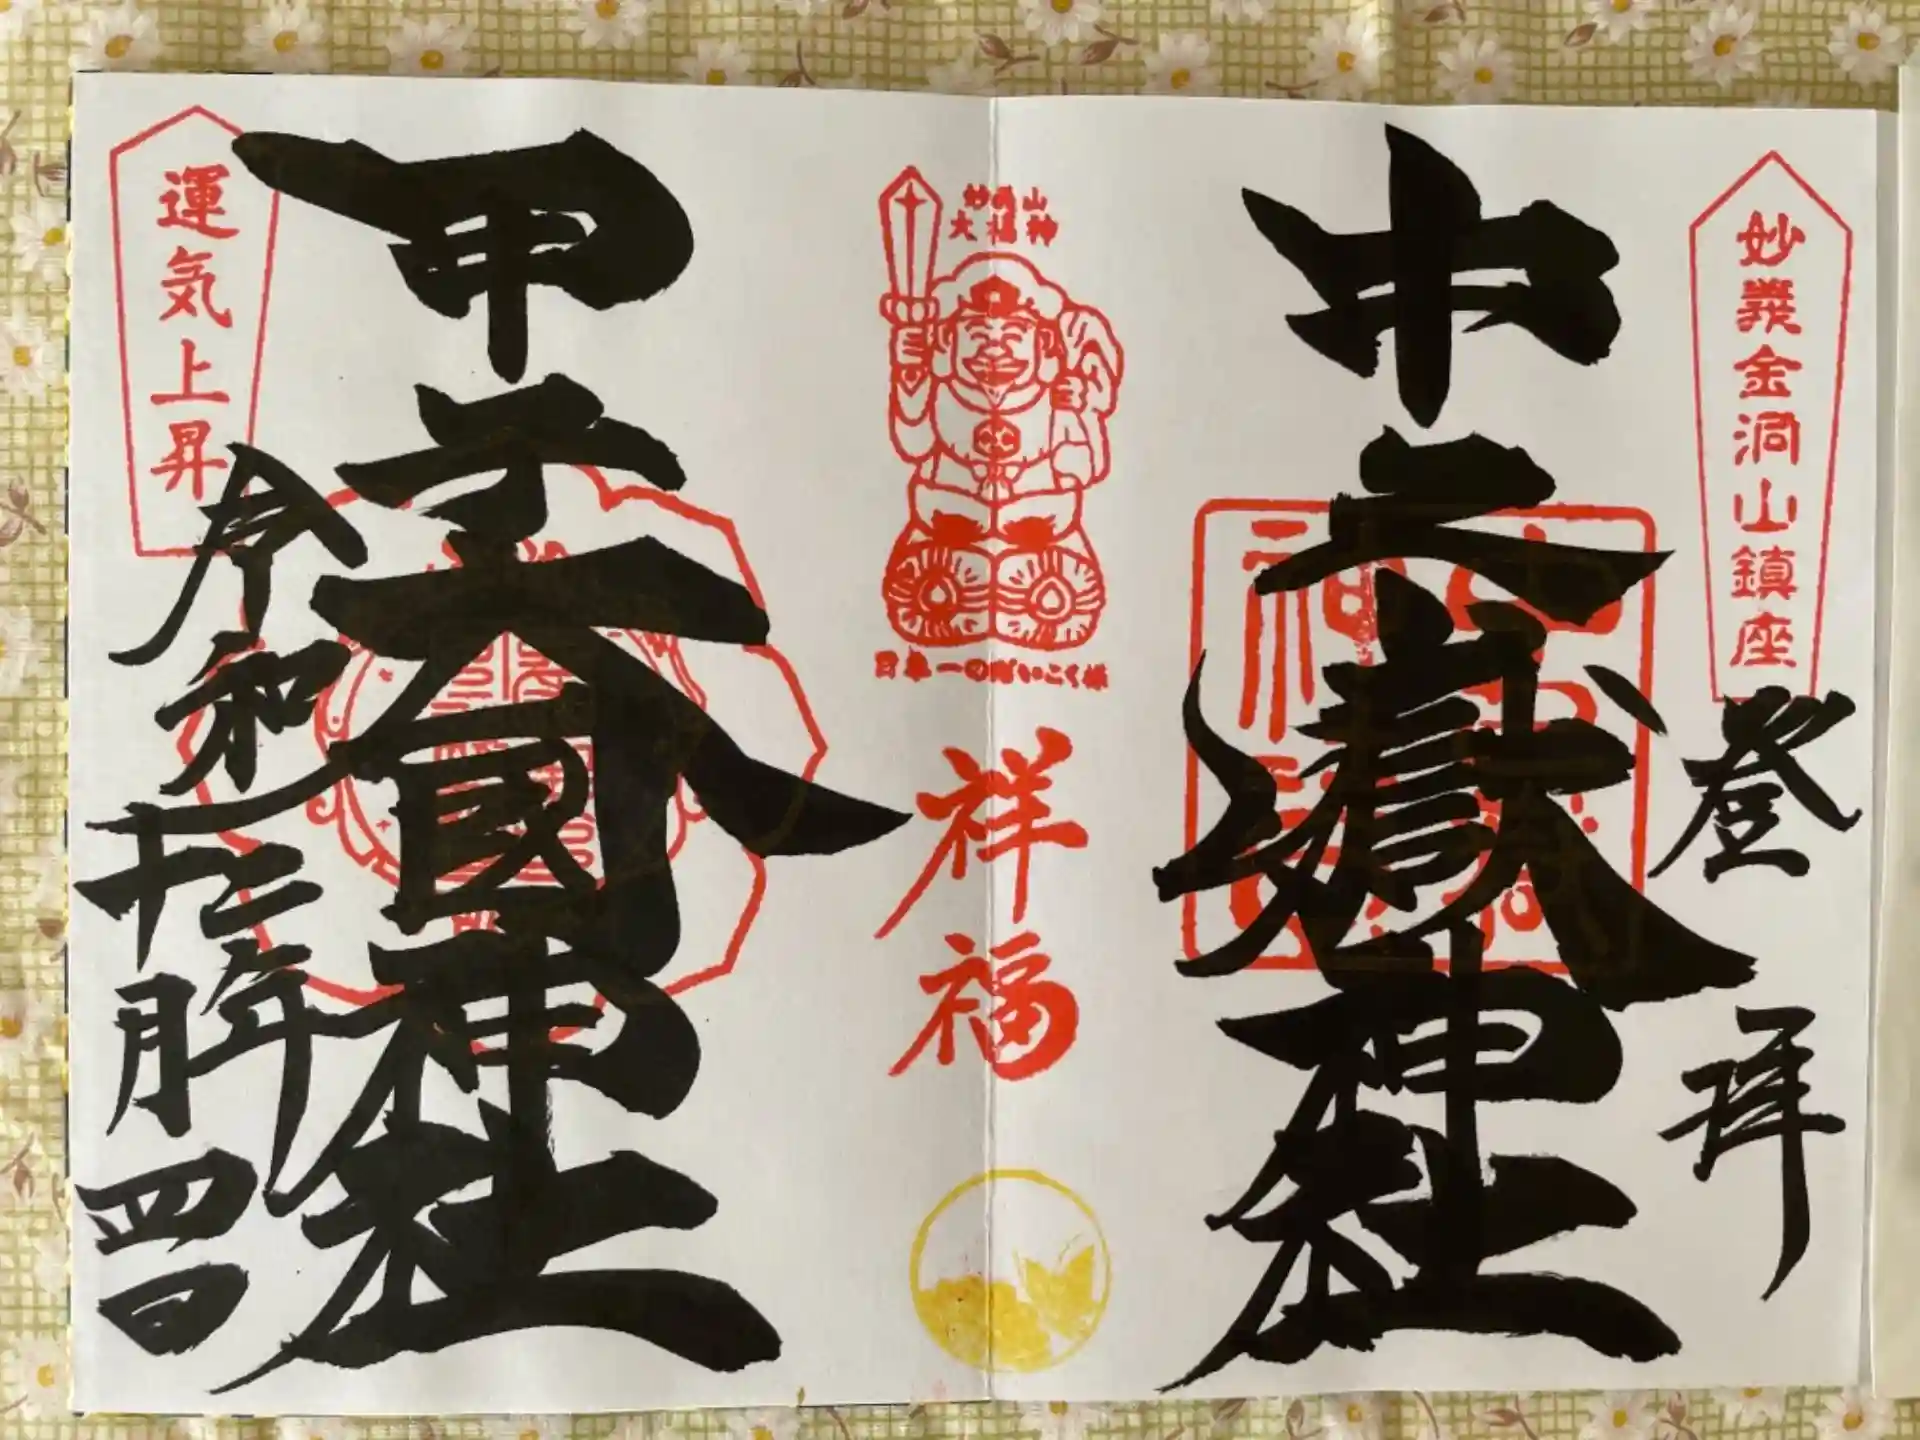 妙義金洞山鎮座
登拝
中之嶽神社
妙義山
大福神
日本一のだいこく様
祥福
甲子大國神社
運気上昇
令和二年
月四日